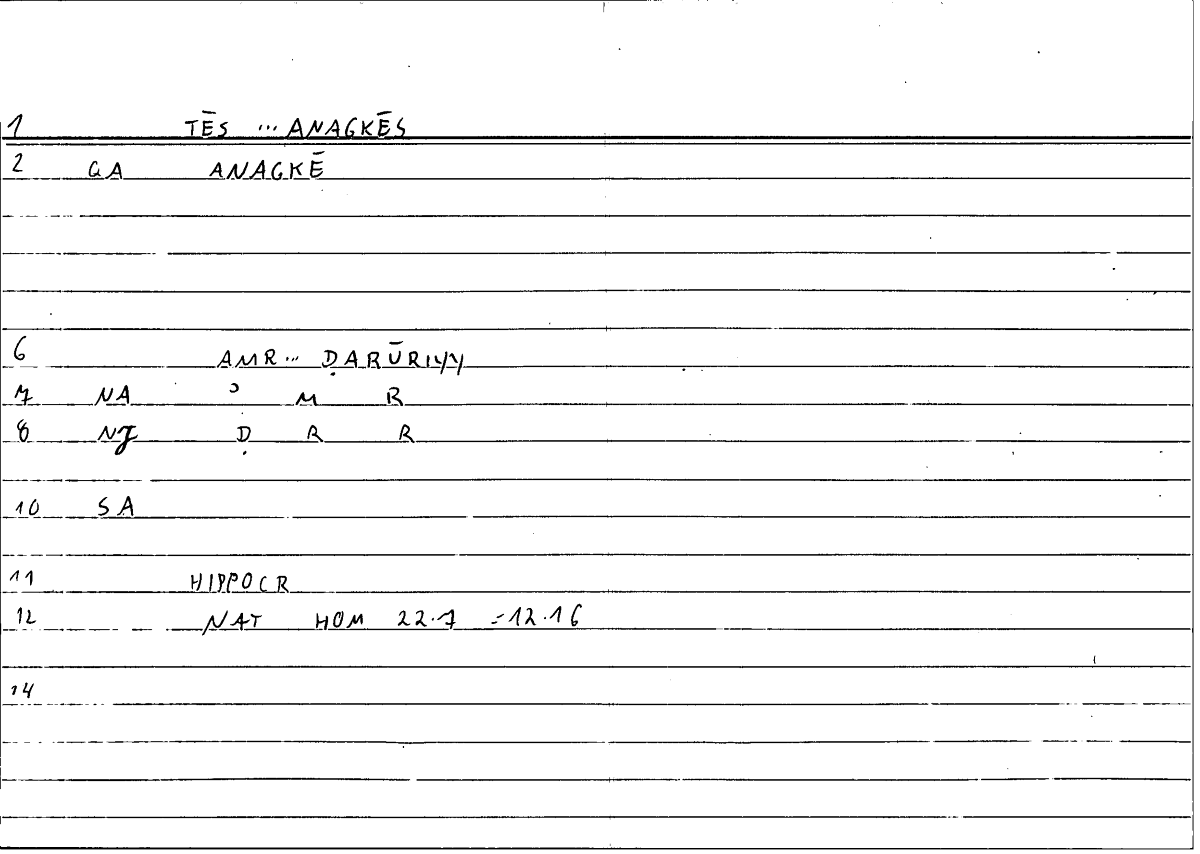 1 TĒS ... ANAGKĒS
2 GA ANAGKĒ
6 AMR... ḌARŪRIYY
7 NA ʾ M R
8 NJ Ḍ R R
10 SA
11 HIPPOCR
12 NAT HOM 22.7 = 12.16
14